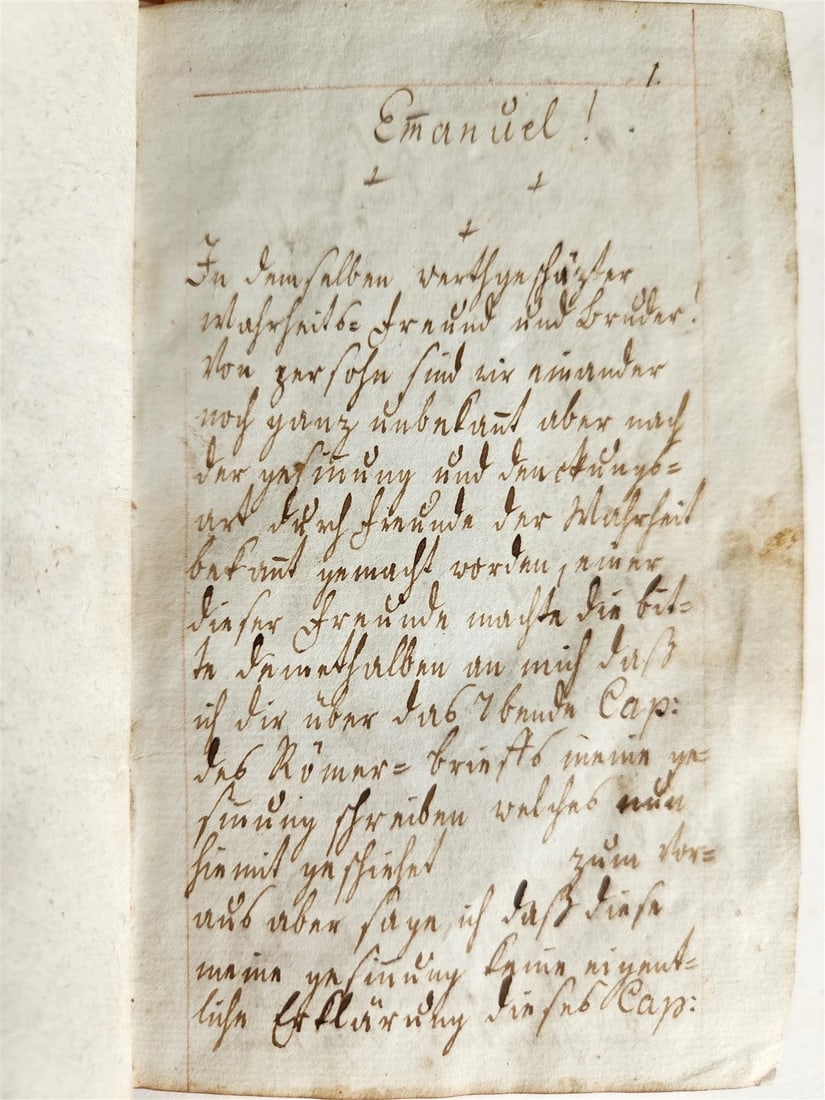 1.
Em̄anuel!
In demselben werthgeschäzter
Wahrheits= Freund und Bruder!
Von persohn sind wir einander
noch ganz unbekan̄t aber nach
der gesin̄ung und denckungs=
art durch Freunde der Wahrheit
bekan̄t gemacht worden, einer
dieser Freunde machte die bit=
te demethalben an mich daß
ich dir über das 7bende Cap:
des Römer= brieffs meine ge=
sin̄ung schreiben welches nun
hiemit geschiehet zum Vor=
aus aber sage ich daß diese
meine gesin̄ung keine eigent=
liche Erklärung dieses Cap: